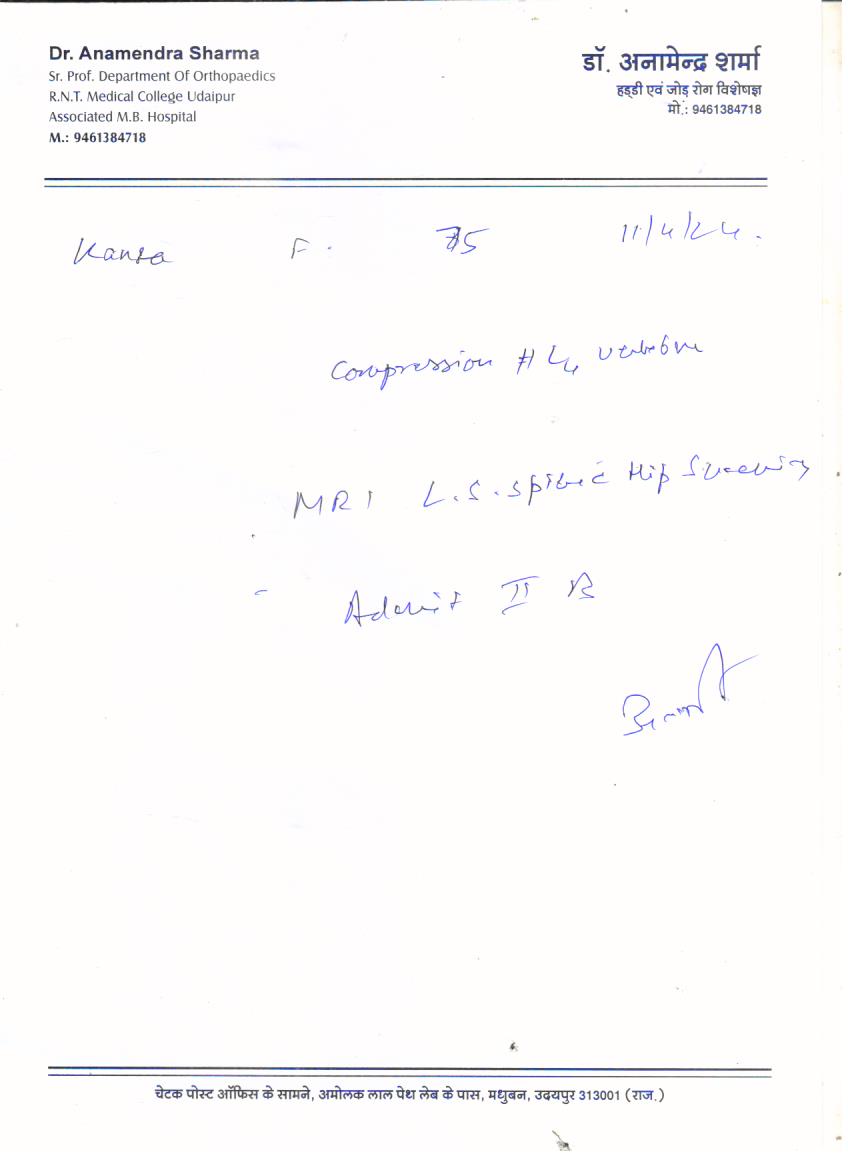 Dr. Anamendra Sharma
Sr. Prof. Department Of Orthopaedics
R.N.T. Medical College Udaipur
Associated M.B. Hospital
M.: 9461384718
डॉ. अनामेन्द्र शर्मा
हड्डी एवं जोड़ रोग विशेषज्ञ
मो.: 9461384718
Kanta F. 75 11/4/24.
Compression # L4 vertebra
MRI L.S. spine c̄ Hip Screening
- Admit II B
चेटक पोस्ट ऑफिस के सामने, अमोलक लाल पेथ लेब के पास, मधुबन, उदयपुर 313001 (राज.)